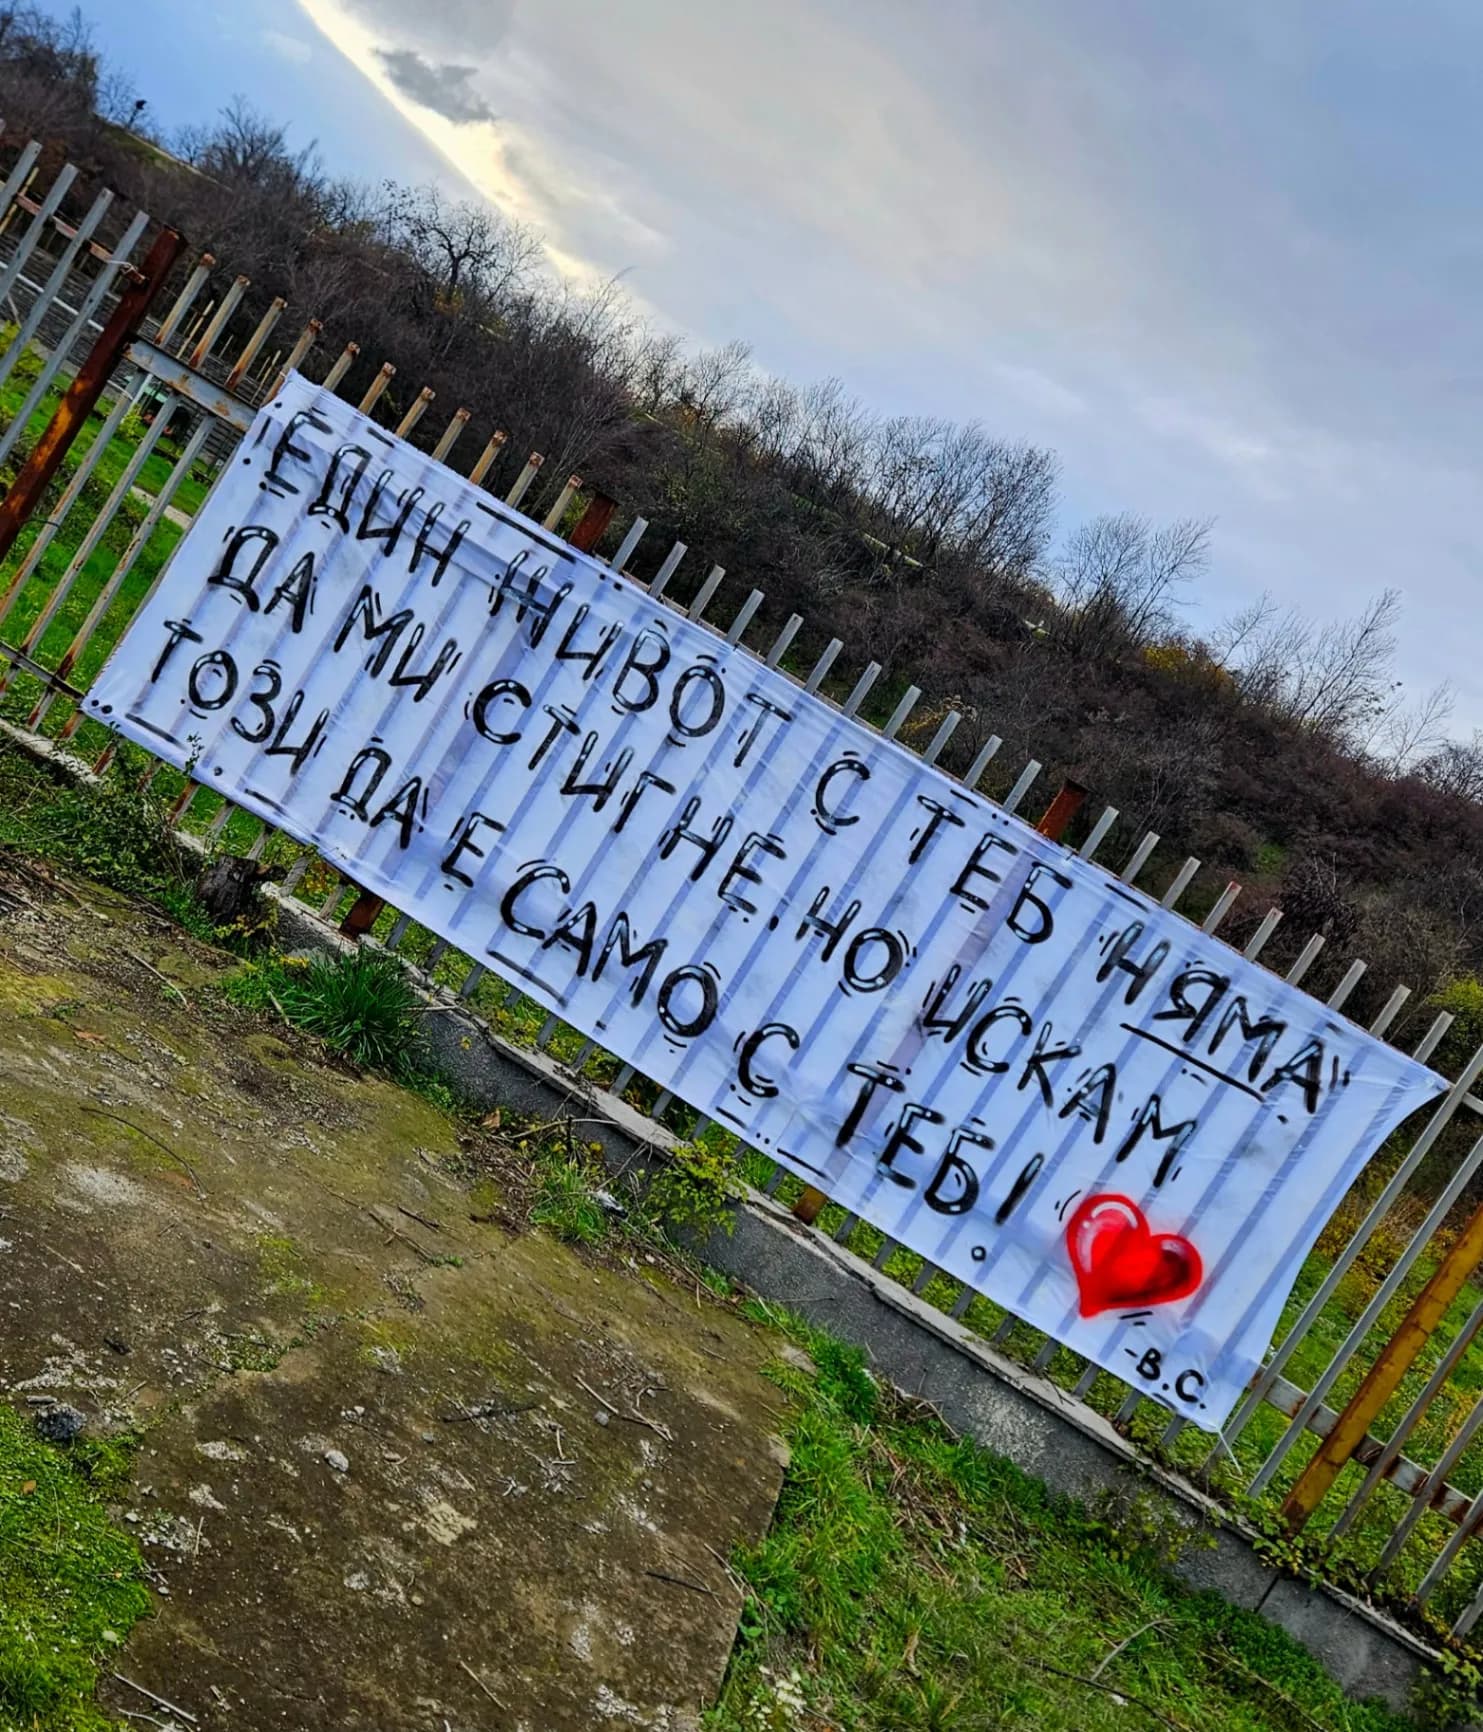 ЕДИН ЖИВОТ С ТЕБ НЯМА
ДА МИ СТИГНЕ. НО ИСКАМ
ТОЗИ ДА Е САМО С ТЕБ!
-В.С.